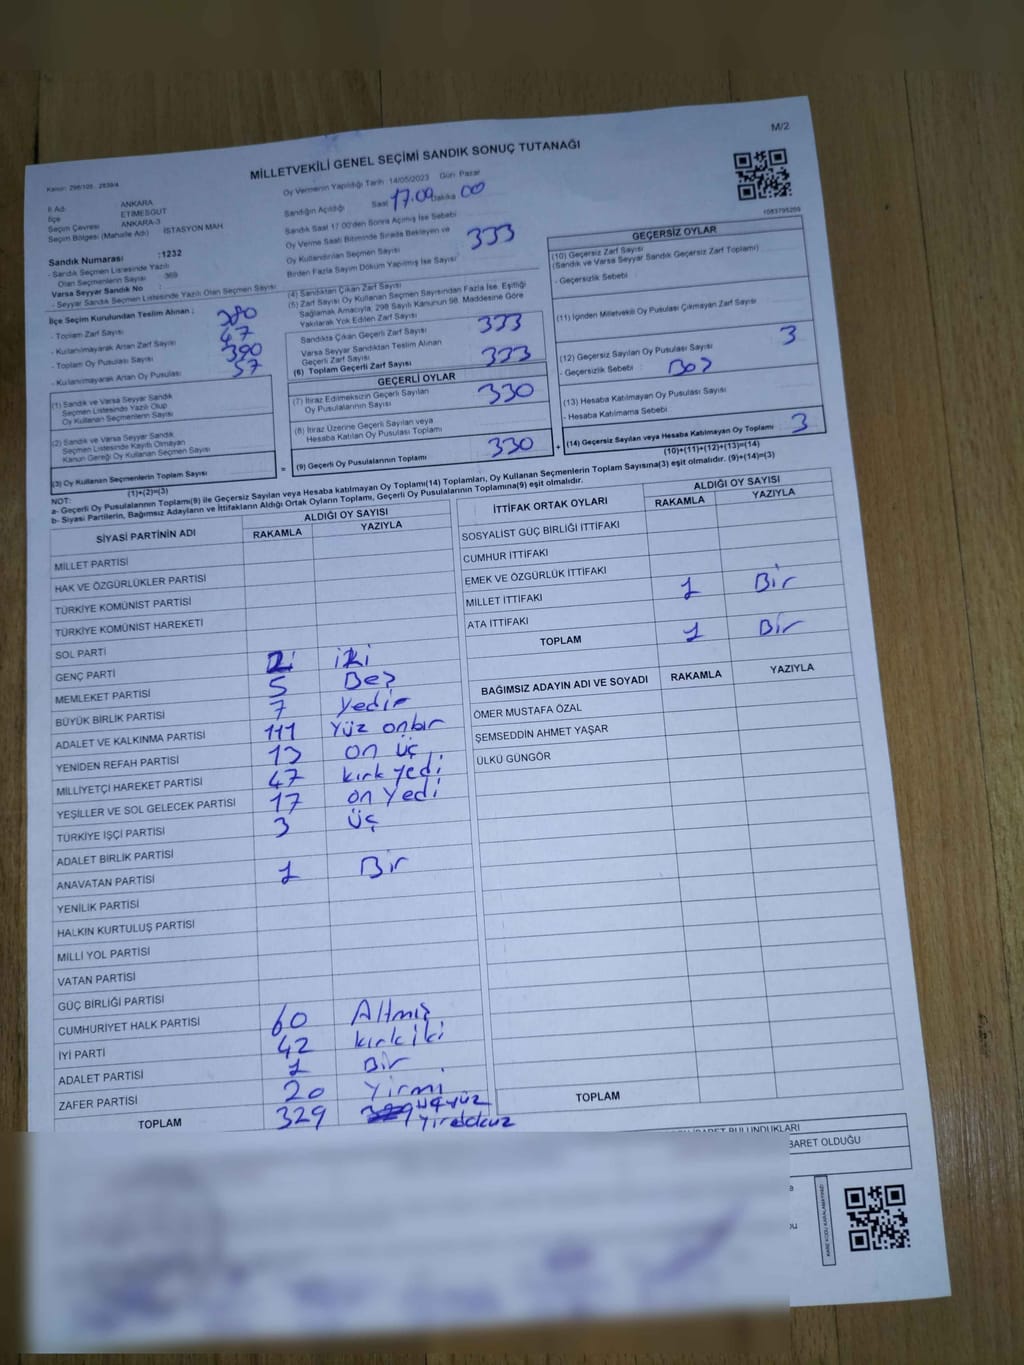 M/2
MİLLETVEKİLİ GENEL SEÇİMİ SANDIK SONUÇ TUTANAĞI
Kanun: 298/105 , 2839/4
Oy Vermenin Yapıldığı Tarih 14/05/2023 Gün Pazar
İl Adı ANKARA
İlçe ETİMESGUT
Seçim Çevresi ANKARA-3
Seçim Bölgesi (Mahalle Adı) İSTASYON MAH
Sandığın Açıldığı Saat 17.00 Dakika 00
Sandık Saat 17.00'den Sonra Açılmış İse Sebebi
Oy Verme Saati Bitiminde Sırada Bekleyen ve
Oy Kullandırılan Seçmen Sayısı 333
Birden Fazla Sayım Döküm Yapılmış İse Sayısı
Sandık Numarası :1232
- Sandık Seçmen Listesinde Yazılı
Olan Seçmenlerin Sayısı : 369
Varsa Seyyar Sandık No
- Seyyar Sandık Seçmen Listesinde Yazılı Olan Seçmen Sayısı
İlçe Seçim Kurulundan Teslim Alınan ;
- Toplam Zarf Sayısı 380
- Kullanılmayarak Artan Zarf Sayısı 47
- Toplam Oy Pusulası Sayısı 390
- Kullanılmayarak Artan Oy Pusulası 57
(1) Sandık ve Varsa Seyyar Sandık
Seçmen Listesinde Yazılı Olup
Oy Kullanan Seçmenlerin Sayısı
(2) Sandık ve Varsa Seyyar Sandık
Seçmen Listesinde Kayıtlı Olmayan
Kanun Gereği Oy Kullanan Seçmen Sayısı
(3) Oy Kullanan Seçmenlerin Toplam Sayısı
(1)+(2)=(3)
(4) Sandıktan Çıkan Zarf Sayısı
(5) Zarf Sayısı Oy Kullanan Seçmen Sayısından Fazla İse, Eşitliği
Sağlamak Amacıyla, 298 Sayılı Kanunun 98. Maddesine Göre
Yakılarak Yok Edilen Zarf Sayısı
Sandıkta Çıkan Geçerli Zarf Sayısı 333
Varsa Seyyar Sandıktan Teslim Alınan
Geçerli Zarf Sayısı
(6) Toplam Geçerli Zarf Sayısı 333
GEÇERLİ OYLAR
(7) İtiraz Edilmeksizin Geçerli Sayılan
Oy Pusulalarının Sayısı 330
(8) İtiraz Üzerine Geçerli Sayılan veya
Hesaba Katılan Oy Pusulası Toplamı
= (9) Geçerli Oy Pusulalarının Toplamı 330 +
1083795209
GEÇERSİZ OYLAR
(10) Geçersiz Zarf Sayısı
(Sandık ve Varsa Seyyar Sandık Geçersiz Zarf Toplamı)
- Geçersizlik Sebebi
(11) İçinden Milletvekili Oy Pusulası Çıkmayan Zarf Sayısı
(12) Geçersiz Sayılan Oy Pusulası Sayısı 3
- Geçersizlik Sebebi : Boş
(13) Hesaba Katılmayan Oy Pusulası Sayısı
- Hesaba Katılmama Sebebi
(14) Geçersiz Sayılan veya Hesaba Katılmayan Oy Toplamı 3
(10)+(11)+(12)+(13)=(14)
NOT:
a- Geçerli Oy Pusulalarının Toplamı(9) ile Geçersiz Sayılan veya Hesaba katılmayan Oy Toplamı(14) Toplamları, Oy Kullanan Seçmenlerin Toplam Sayısına(3) eşit olmalıdır. (9)+(14)=(3)
b- Siyasi Partilerin, Bağımsız Adayların ve İttifakların Aldığı Ortak Oyların Toplamı, Geçerli Oy Pusulalarının Toplamına(9) eşit olmalıdır.
SİYASİ PARTİNİN ADI ALDIĞI OY SAYISI
RAKAMLA YAZIYLA
MİLLET PARTİSİ
HAK VE ÖZGÜRLÜKLER PARTİSİ
TÜRKİYE KOMÜNİST PARTİSİ
TÜRKİYE KOMÜNİST HAREKETİ
SOL PARTİ
GENÇ PARTİ 2 iki
MEMLEKET PARTİSİ 5 Beş
BÜYÜK BİRLİK PARTİSİ 7 Yedi
ADALET VE KALKINMA PARTİSİ 111 Yüz onbir
YENİDEN REFAH PARTİSİ 13 on üç
MİLLİYETÇİ HAREKET PARTİSİ 47 kırk yedi
YEŞİLLER VE SOL GELECEK PARTİSİ 17 on Yedi
TÜRKİYE İŞÇİ PARTİSİ 3 üç
ADALET BİRLİK PARTİSİ
ANAVATAN PARTİSİ 1 Bir
YENİLİK PARTİSİ
HALKIN KURTULUŞ PARTİSİ
MİLLİ YOL PARTİSİ
VATAN PARTİSİ
GÜÇ BİRLİĞİ PARTİSİ
CUMHURİYET HALK PARTİSİ 60 Altmış
İYİ PARTİ 42 kırk iki
ADALET PARTİSİ 1 Bir
ZAFER PARTİSİ 20 Yirmi
TOPLAM 329 üçyüz
İTTİFAK ORTAK OYLARI ALDIĞI OY SAYISI
RAKAMLA YAZIYLA
SOSYALİST GÜÇ BİRLİĞİ İTTİFAKI
CUMHUR İTTİFAKI
EMEK VE ÖZGÜRLÜK İTTİFAKI
MİLLET İTTİFAKI 1 Bir
ATA İTTİFAKI
TOPLAM 1 Bir
BAĞIMSIZ ADAYIN ADI VE SOYADI RAKAMLA YAZIYLA
ÖMER MUSTAFA ÖZAL
ŞEMSEDDİN AHMET YAŞAR
ÜLKÜ GÜNGÖR
TOPLAM
BULUNDUKLARI
BARET OLDUĞU